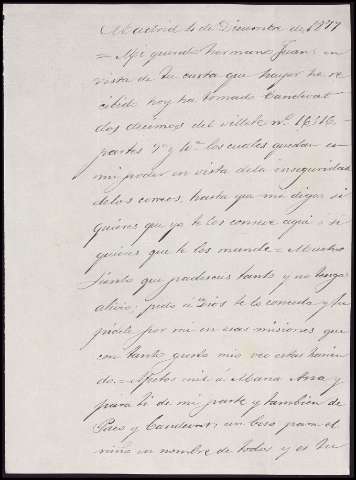 Madrid 4 de Diciembre de 1877
= Mi querido hermano Juan: en
vista de tu carta que hoy he re
cibido hoy ha tomado Candevat
dos decimos del villete nº 16,516 -
partes 3ª y 4ª los cuales quedan en
mi poder en vista de la inseguridad
de los correos, hasta que me digas si
quieres que yo te los conserve aqui ó si
quieres que te los mande = Mucho
siento que padezcas tanto y no tengas
alivio; pido á Dios te lo conceda y tu
pidele por mi en esas misiones que
con tanto gusto mio veo estas hacien
do. = Afectos mil á Maria Ana y
para ti de mi parte y tambien de
Paco y Candevat; un beso para el
niño en nombre de todos y es tu